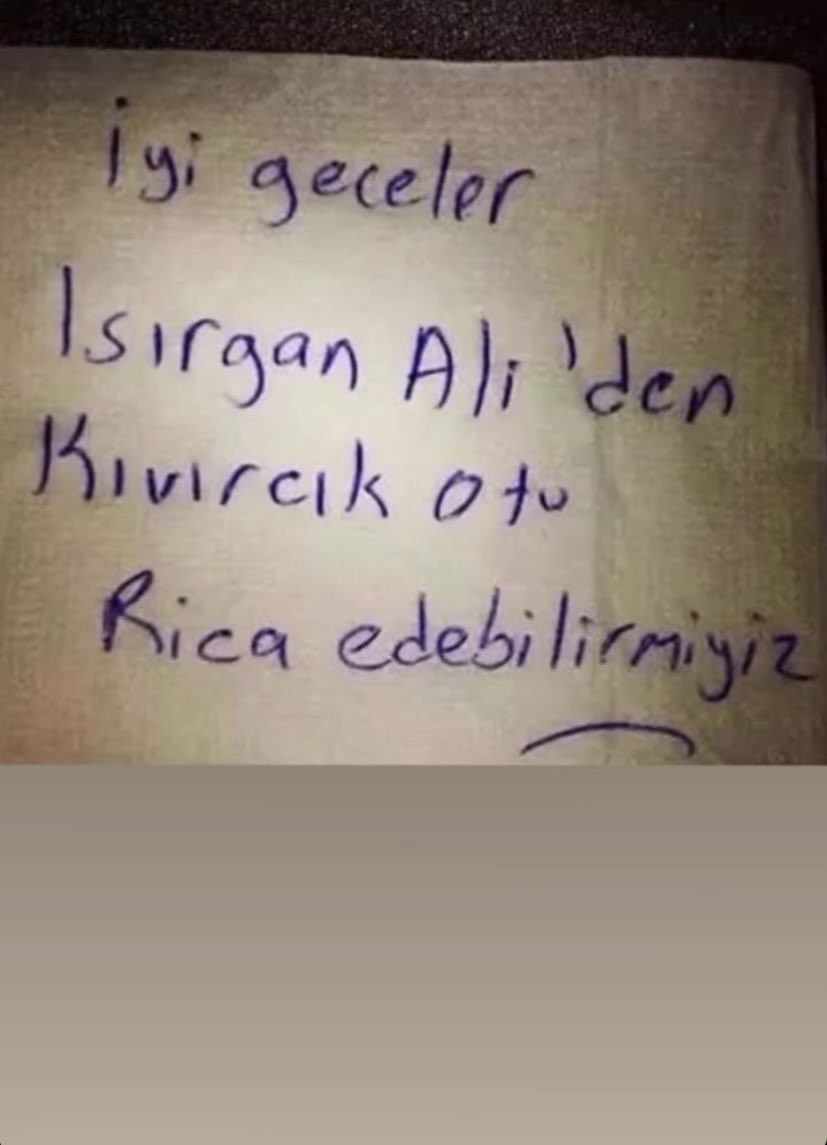 İyi geceler
Isırgan Ali'den
Kıvırcık otu
Rica edebilirmiyiz